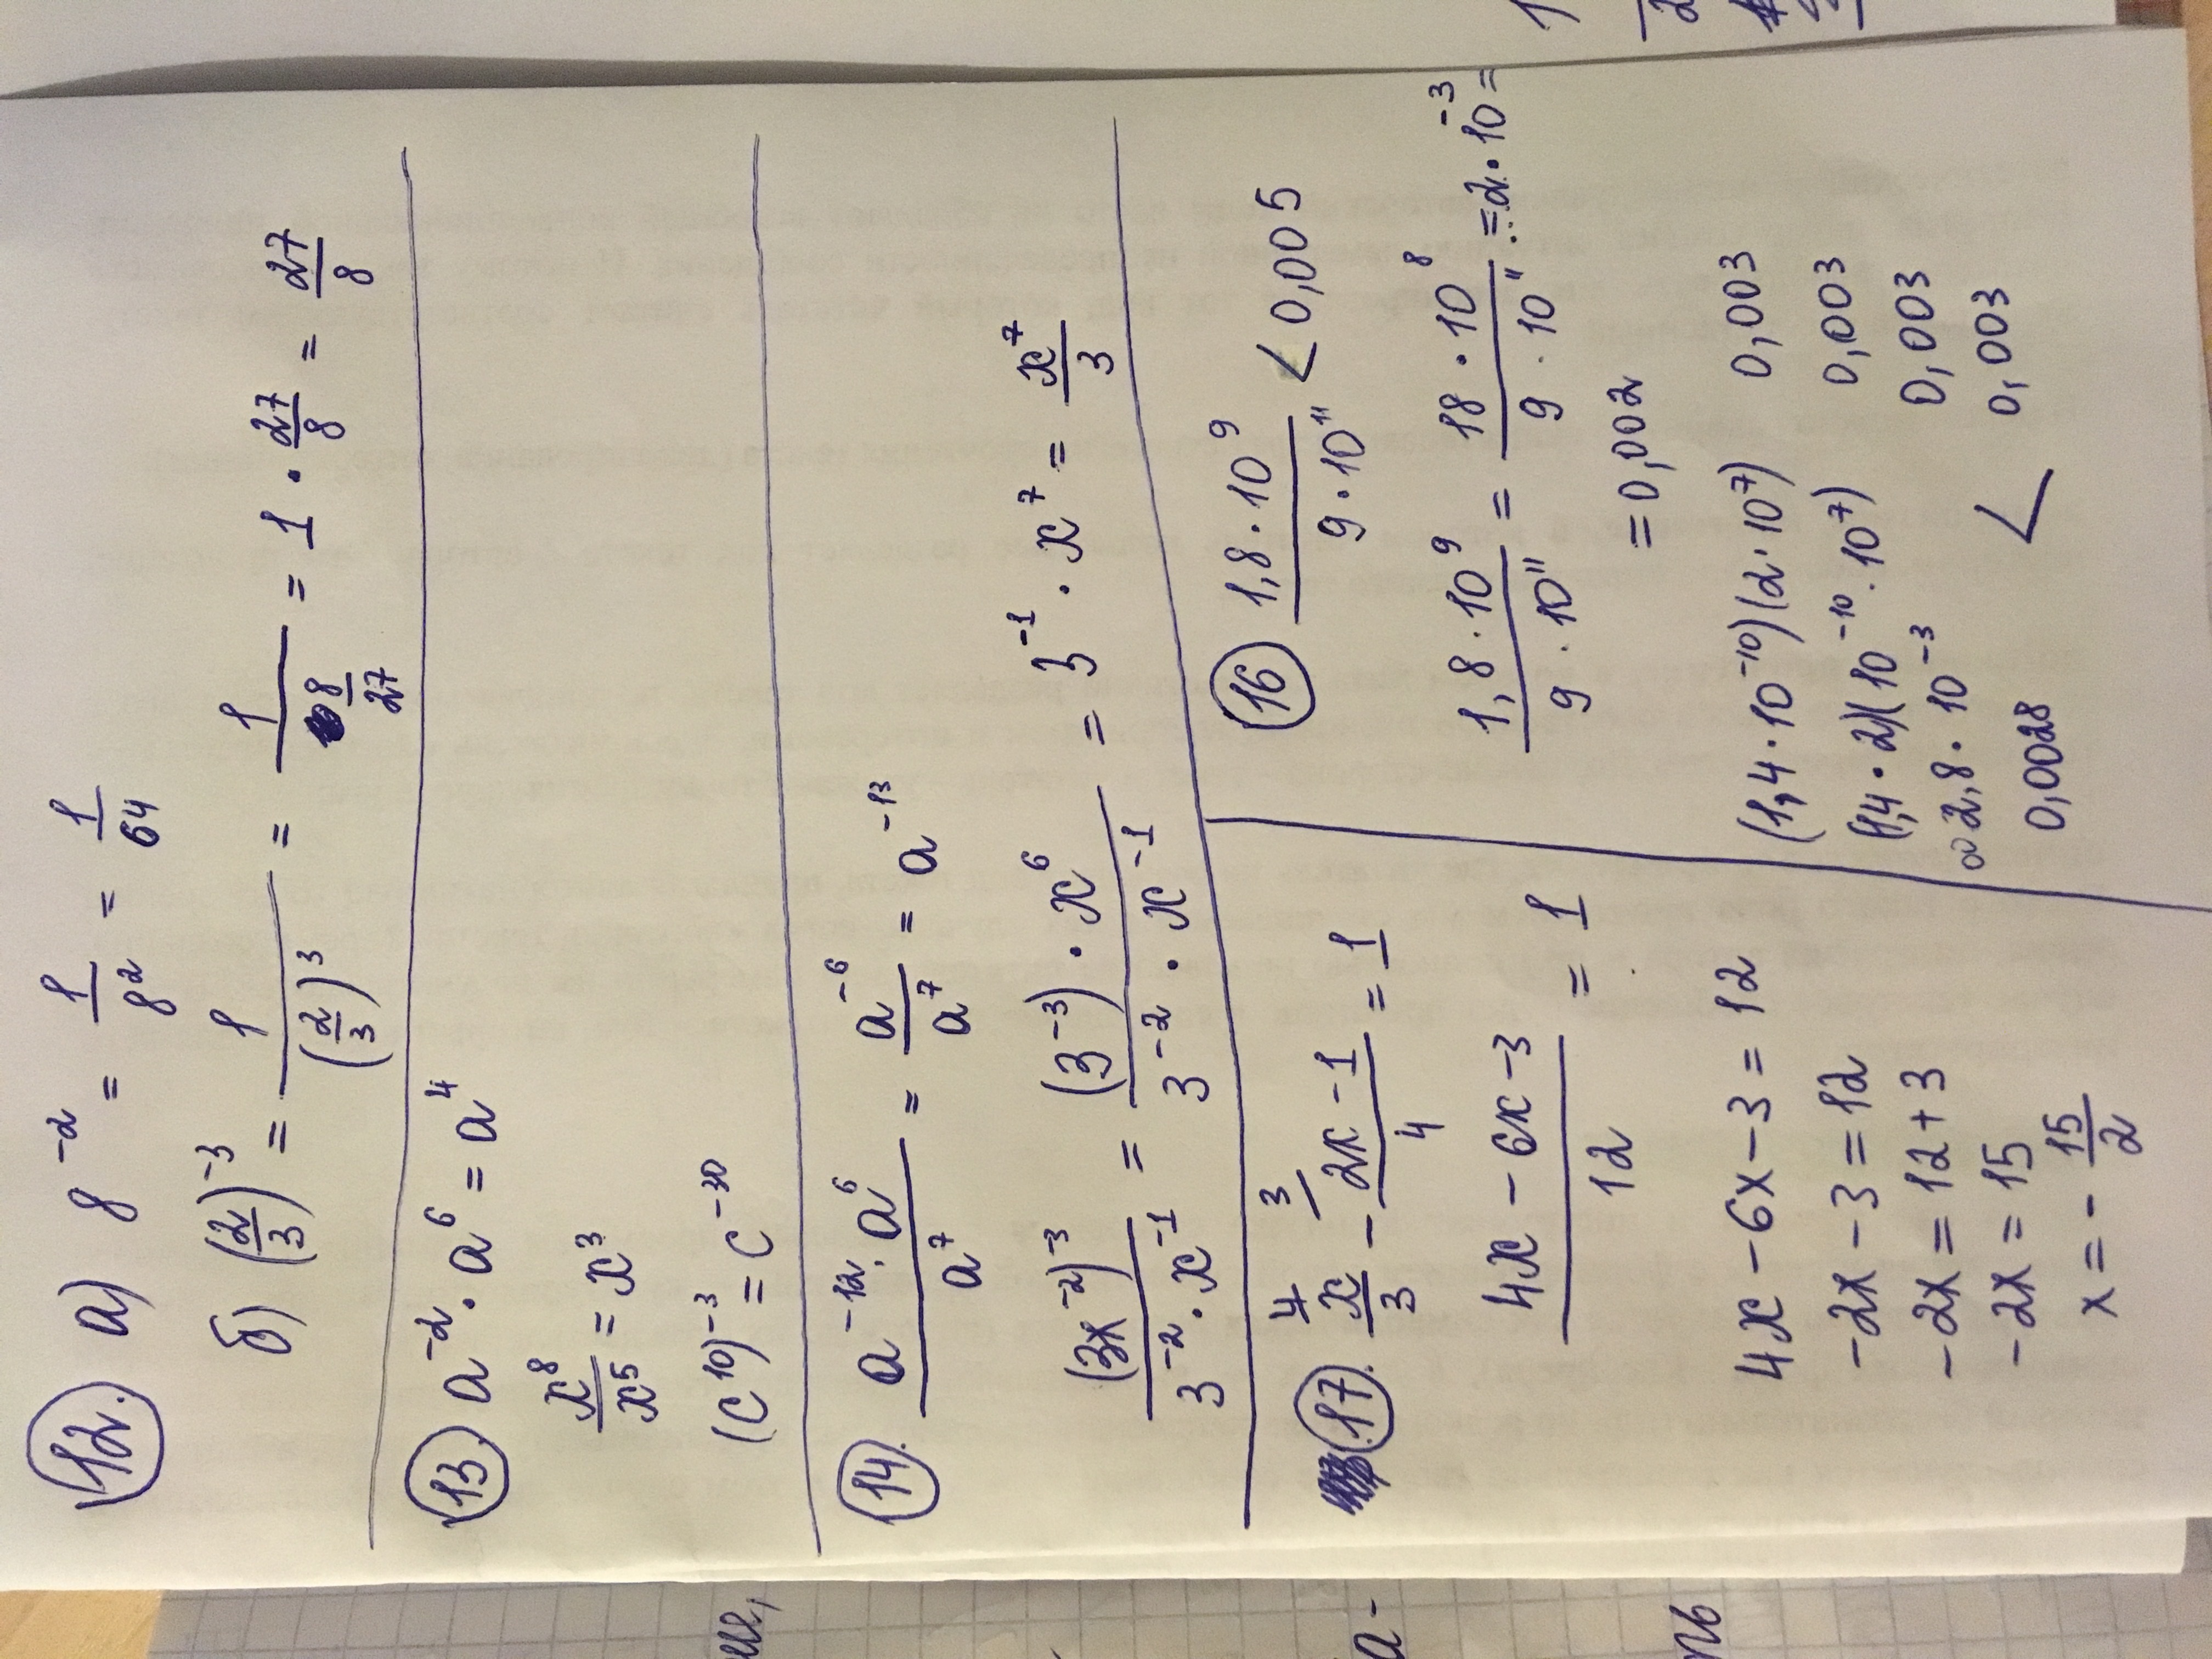 12. а) 8⁻² = 1/8² = 1/64
б) (2/3)⁻³ = 1/(2/3)³ = 1/(8/27) = 1 · 27/8 = 27/8
13. a⁻² · a⁶ = a⁴
x⁸/x⁵ = x³
(c¹⁰)⁻³ = c⁻³⁰
14. (a⁻¹² · a⁶)/a⁷ = a⁻⁶/a⁷ = a⁻¹³
(3x⁻²)⁻³/(3⁻² · x⁻¹) = ((3⁻³) · x⁶)/(3⁻² · x⁻¹) = 3⁻¹ · x⁷ = x⁷/3
17. ⁴ x/3 - ³ (2x-1)/4 = 1
(4x - 6x - 3)/12 = 1
4x - 6x - 3 = 12
-2x - 3 = 12
-2x = 12 + 3
-2x = 15
x = - 15/2
16 (1,8 · 10⁹)/(9 · 10¹¹) < 0,005
(1,8 · 10⁹)/(9 · 10¹¹) = (18 · 10⁸)/(9 · 10¹¹) = 2 · 10⁻³ =
= 0,002
(1,4 · 10⁻¹⁰)(2 · 10⁷) 0,003
(1,4 · 2)(10⁻¹⁰ · 10⁷) 0,003
2,8 · 10⁻³ 0,003
0,0028 < 0,003
а -